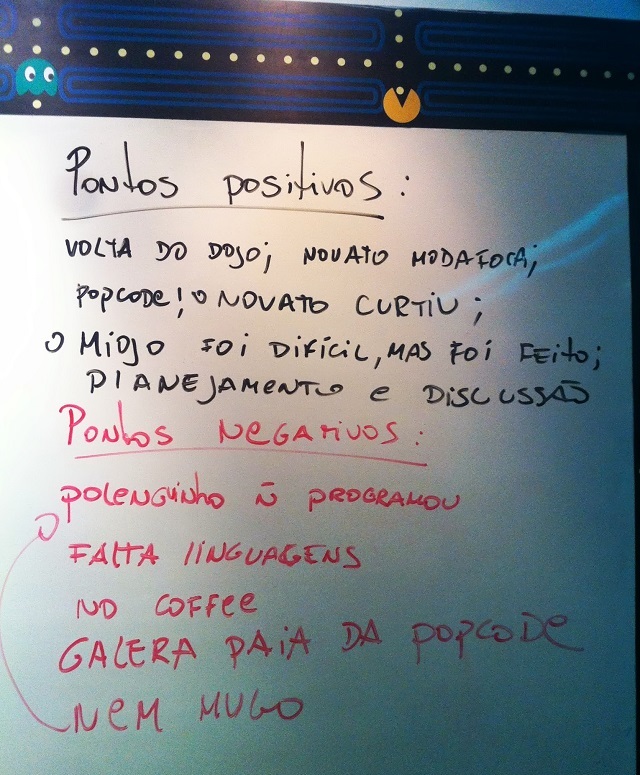 Pontos positivos:
VOLTA DO DOJO; NOVATO MODAFOCA;
POPCODE!; O NOVATO CURTIU;
O MIOJO FOI DIFÍCIL, MAS FOI FEITO;
PLANEJAMENTO E DISCUSSÃO
Pontos NEGATIVOS:
POLENGUINHO Ñ PROGRAMOU
FALTA LINGUAGENS
NO COFFEE
GALERA PAIA DA POPCODE
NEM MUGO